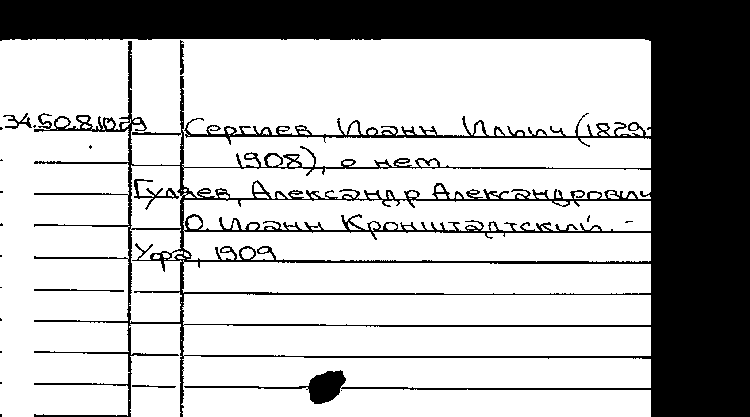 34.50.8.1029 Сергиев, Иоанн Ильич (1829-
1908), о нем.
Гуляев, Александр Александрович
О. Иоанн Кронштадтский. -
Уфа, 1909